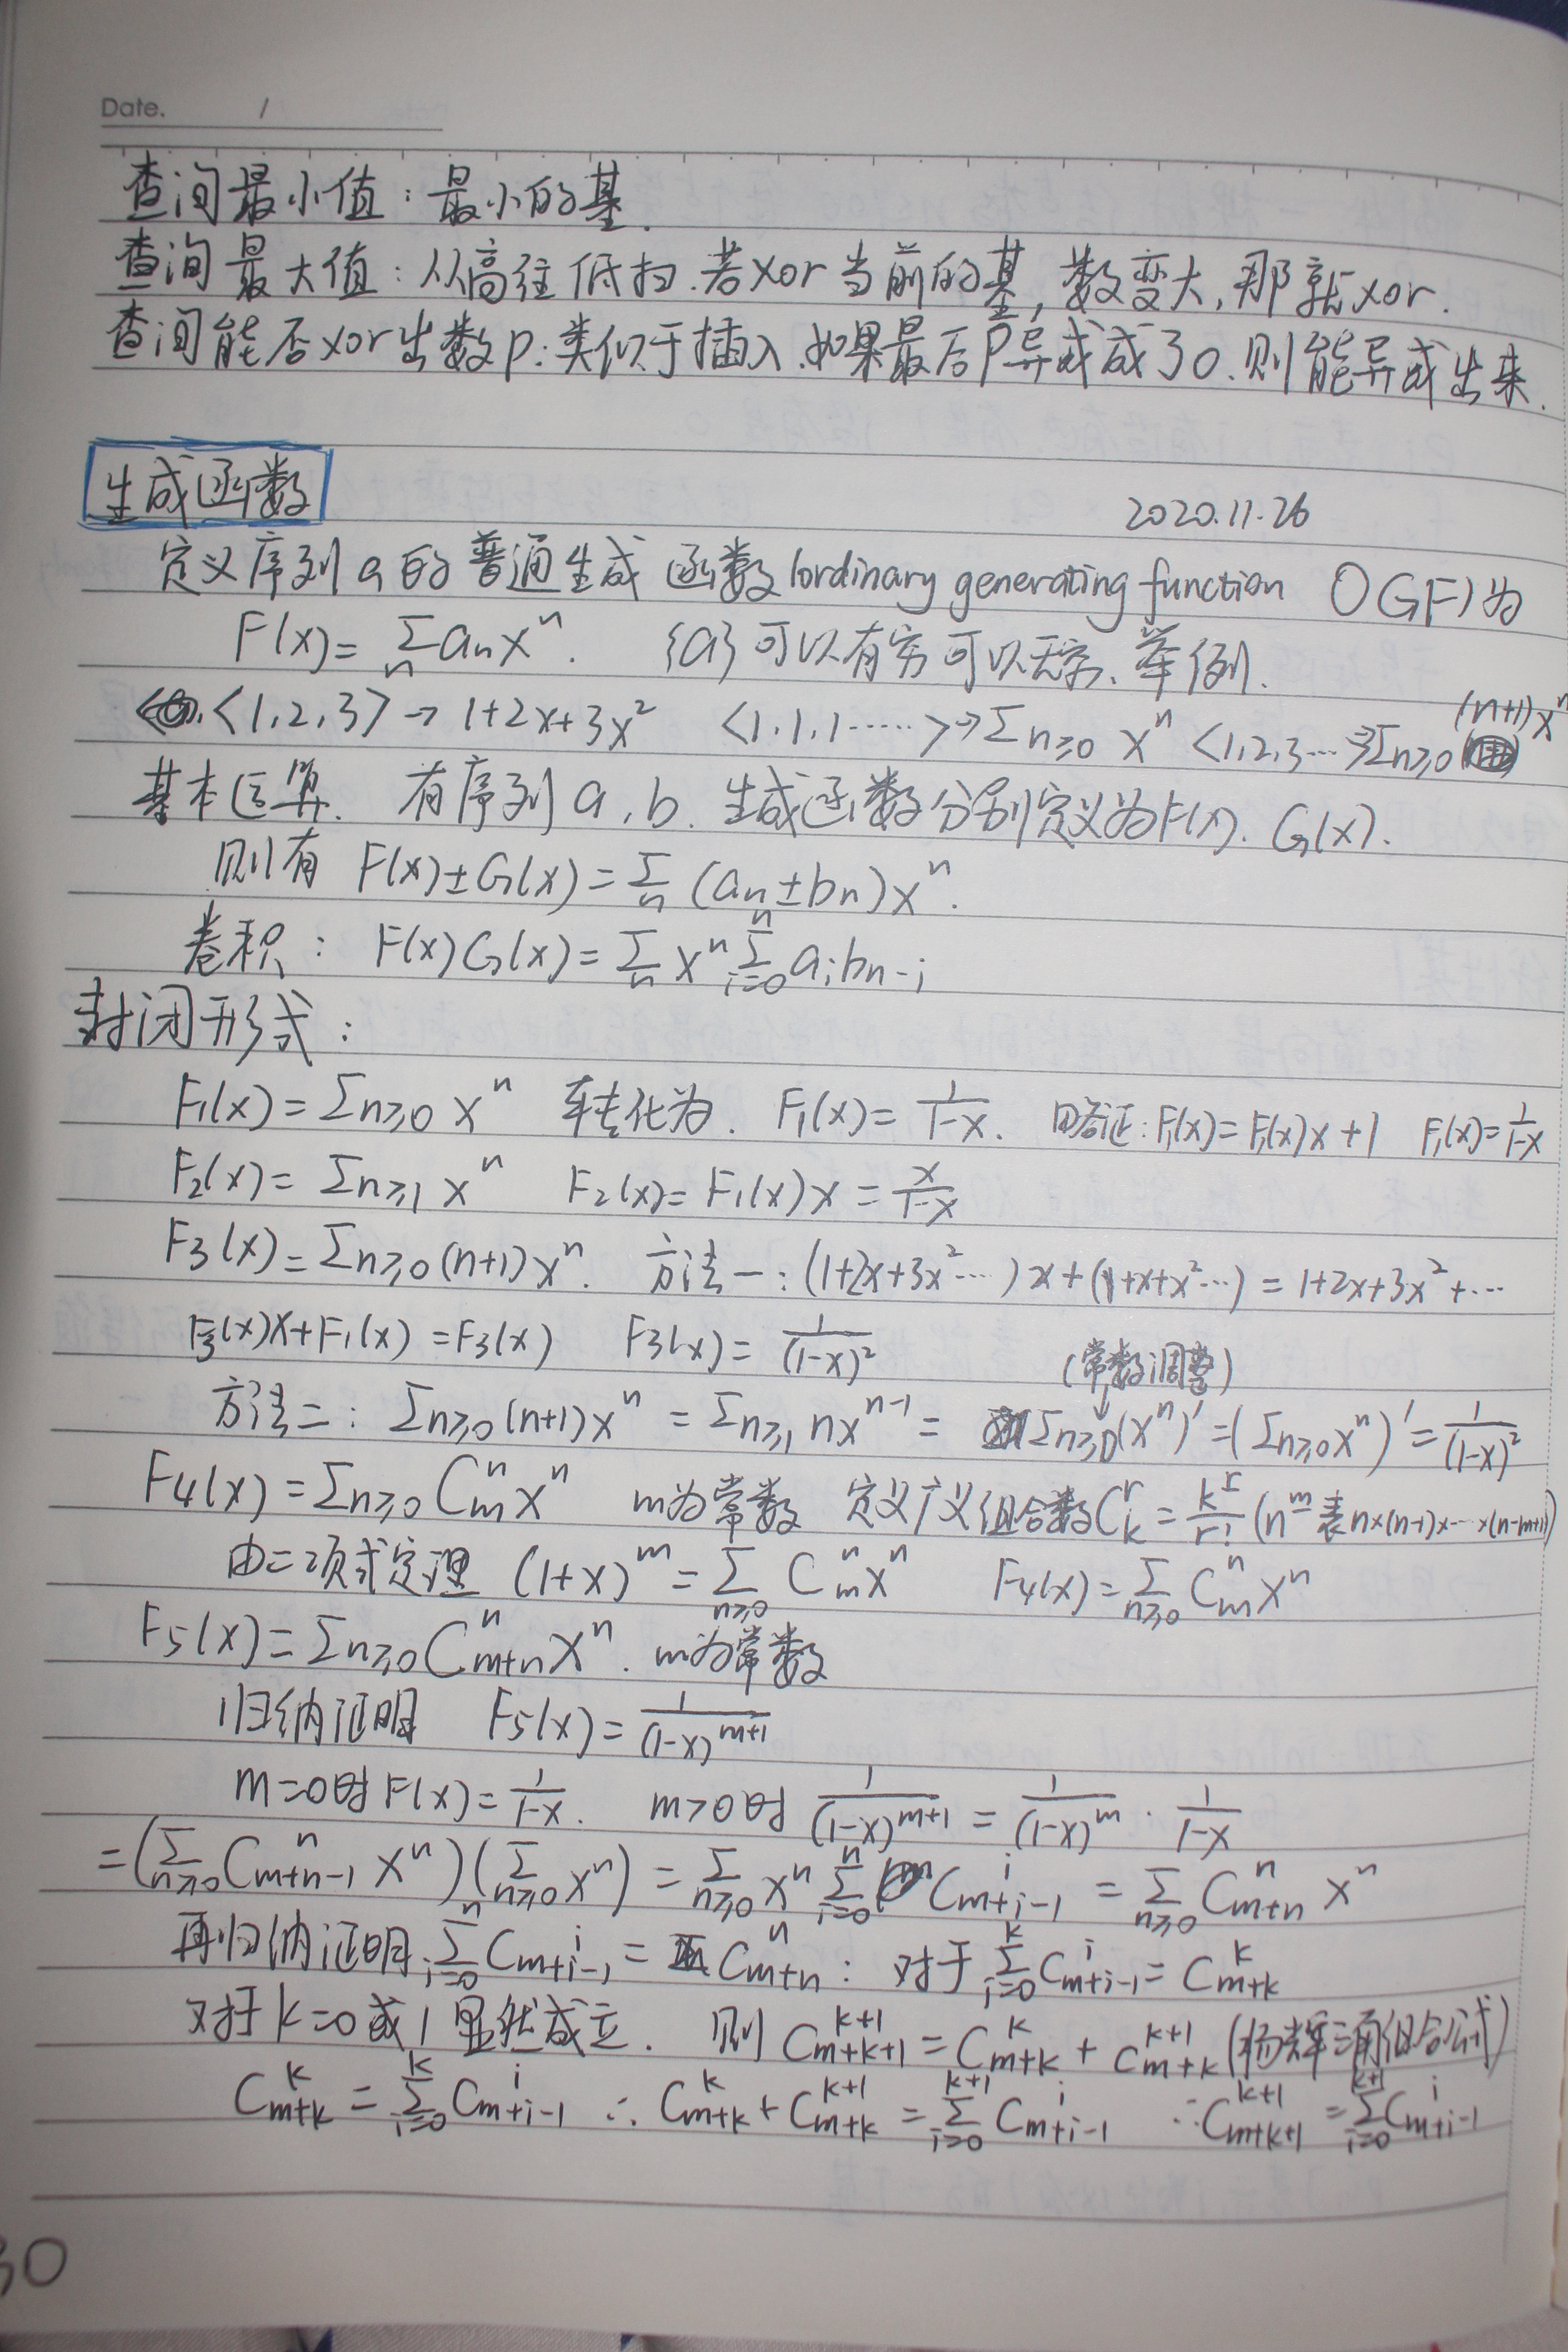 Date. /
查询最小值：最小的基.
查询最大值：从高往低扫.若xor当前的基,数变大,那就xor.
查询能否xor出数p:类似于插入.如果最后P异或成了0.则能异或出来.
生成函数
2020.11.26
定义序列a的普通生成函数(ordinary generating function OGF)为
F(x)=∑_n a_n x^n. {a}可以有穷可以无穷、举例.
<1,2,3>→1+2x+3x^2 <1,1,1……>→∑n≥0 x^n <1,2,3…>∑n≥0 (n+1)x^n
基本运算. 有序列a,b.生成函数分别定义为F(x). G(x).
则有 F(x)±G(x)=∑_n (a_n±b_n)x^n.
卷积: F(x)G(x)=∑_n x^n ∑_{i=0}^n a_i b_{n-i}
封闭形式:
F_1(x)=∑n≥0 x^n 转化为. F_1(x)=1/(1-x). 略证:F_1(x)=F_1(x)x+1 F_1(x)=1/(1-x)
F_2(x)=∑n≥1 x^n F_2(x)=F_1(x)x=x/(1-x)
F_3(x)=∑n≥0(n+1)x^n. 方法一:(1+2x+3x^2…)x+(1+x+x^2…)=1+2x+3x^2+…
F_3(x)x+F_1(x)=F_3(x) F_3(x)=1/(1-x)^2
(常数调整)
方法二: ∑n≥0(n+1)x^n=∑n≥1 nx^{n-1}=∑n≥0(x^n)'=(∑n≥0x^n)'=1/(1-x)^2
F_4(x)=∑n≥0 C_m^n x^n m为常数 定义广义组合数C_k^r=k^r/r! (n^m表n×(n-1)×…×(n-m+1))
由二项式定理 (1+x)^m=∑_{n≥0} C_m^n x^n F_4(x)=∑_{n≥0} C_m^n x^n
F_5(x)=∑n≥0 C_{m+n}^n x^n. m为常数
归纳证明 F_5(x)=1/(1-x)^{m+1}
m=0时F(x)=1/(1-x). m>0时 1/(1-x)^{m+1}=1/(1-x)^m·1/(1-x)
=(∑_{n≥0} C_{m+n-1}^n x^n)(∑_{n≥0} x^n)=∑_{n≥0} x^n ∑_{i=0}^n C_{m+i-1}^i=∑_{n≥0} C_{m+n}^n x^n
再归纳证明∑_{i=0}^n C_{m+i-1}^i=C_{m+n}^n: 对于∑_{i=0}^k C_{m+i-1}^i=C_{m+k}^k
对于k=0或1显然成立. 则 C_{m+k+1}^{k+1}=C_{m+k}^k+C_{m+k}^{k+1}(杨辉三角组合公式)
C_{m+k}^k=∑_{i=0}^k C_{m+i-1}^i ∴C_{m+k}^k+C_{m+k}^{k+1}=∑_{i=0}^{k+1} C_{m+i-1}^i ∴C_{m+k+1}^{k+1}=∑_{i=0}^{k+1} C_{m+i-1}^i
30